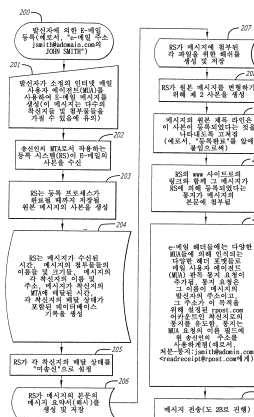 200
발신자에 의한 E-메일
등록(예로서, "e-메일 주소
jsmith@adomain.com의
JOHN SMITH")
201
발신자가 소정의 인터넷 메일
사용자 에이전트(MUA)를
사용하여 E-메일 메시지를
생성(이 메시지는 다수의
착신지들 및 첨부물들을
가질 수 있음에 유의)
202
송신인의 MTA로서 작용하는
등록 시스템(RS)이 E-메일의
사본을 수신
203
RS는 등록 프로세스가
완료될 때까지 저장될
원본 메시지의 사본을 생성
204
RS는 메시지가 수신된
시간, 메시지의 첨부물들의
이름들 및 크기들, 메시지의
각 착신지의 이름 및
주소, 메시지가 착신지의
MTA에 배달된 시간,
각 착신지의 배달 상태가
포함된 데이터베이스
기록을 생성
205
RS가 각 착신지의 배달 상태를
"미송신"으로 설정
206
RS가 메시지의 본문의
메시지 요약서(해시)를
생성 및 저장
207
RS가 메시지에 첨부된
각 파일을 위한 해쉬를
생성 및 저장
RS가 원본 메시지를 변형하기
위해 제 2 사본을 생성
메시지의 원본 제목 라인은
이 사본이 등록되었다는 것을
나타내도록 고쳐짐
(예로서, "등록완료"를 앞에
붙임으로써)
RS의 www 사이트로의
링크와 함께 그 메시지가
RS에 의해 등록되었다는
통지가 메시지의
본문에 첨부됨
e-메일 헤더들에는 다양한
MUA들에 의해 인식되는
다양한 헤더 포맷들로
메일 사용자 에이전트
(MUA) 판독 통지 요청이
추가됨, 통지 요청은
그 이름이 메시지의
발신자의 주소이고,
그 주소가 이 목적을
위해 설정된 rpost.com
메시지 전송(도 2B로 진행)